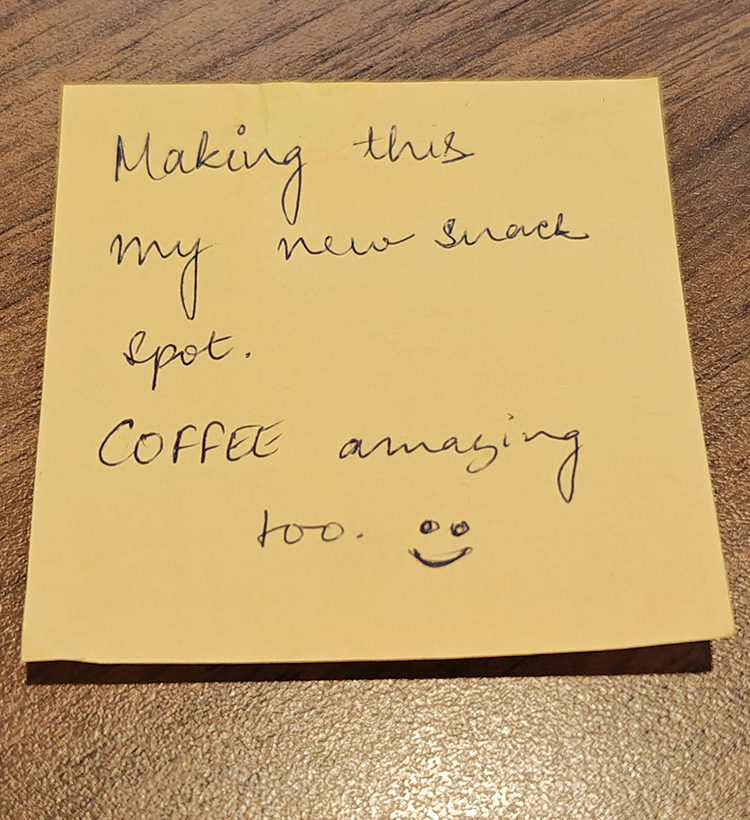 Making this
my new snack
spot.
COFFEE amazing
too. 🙂